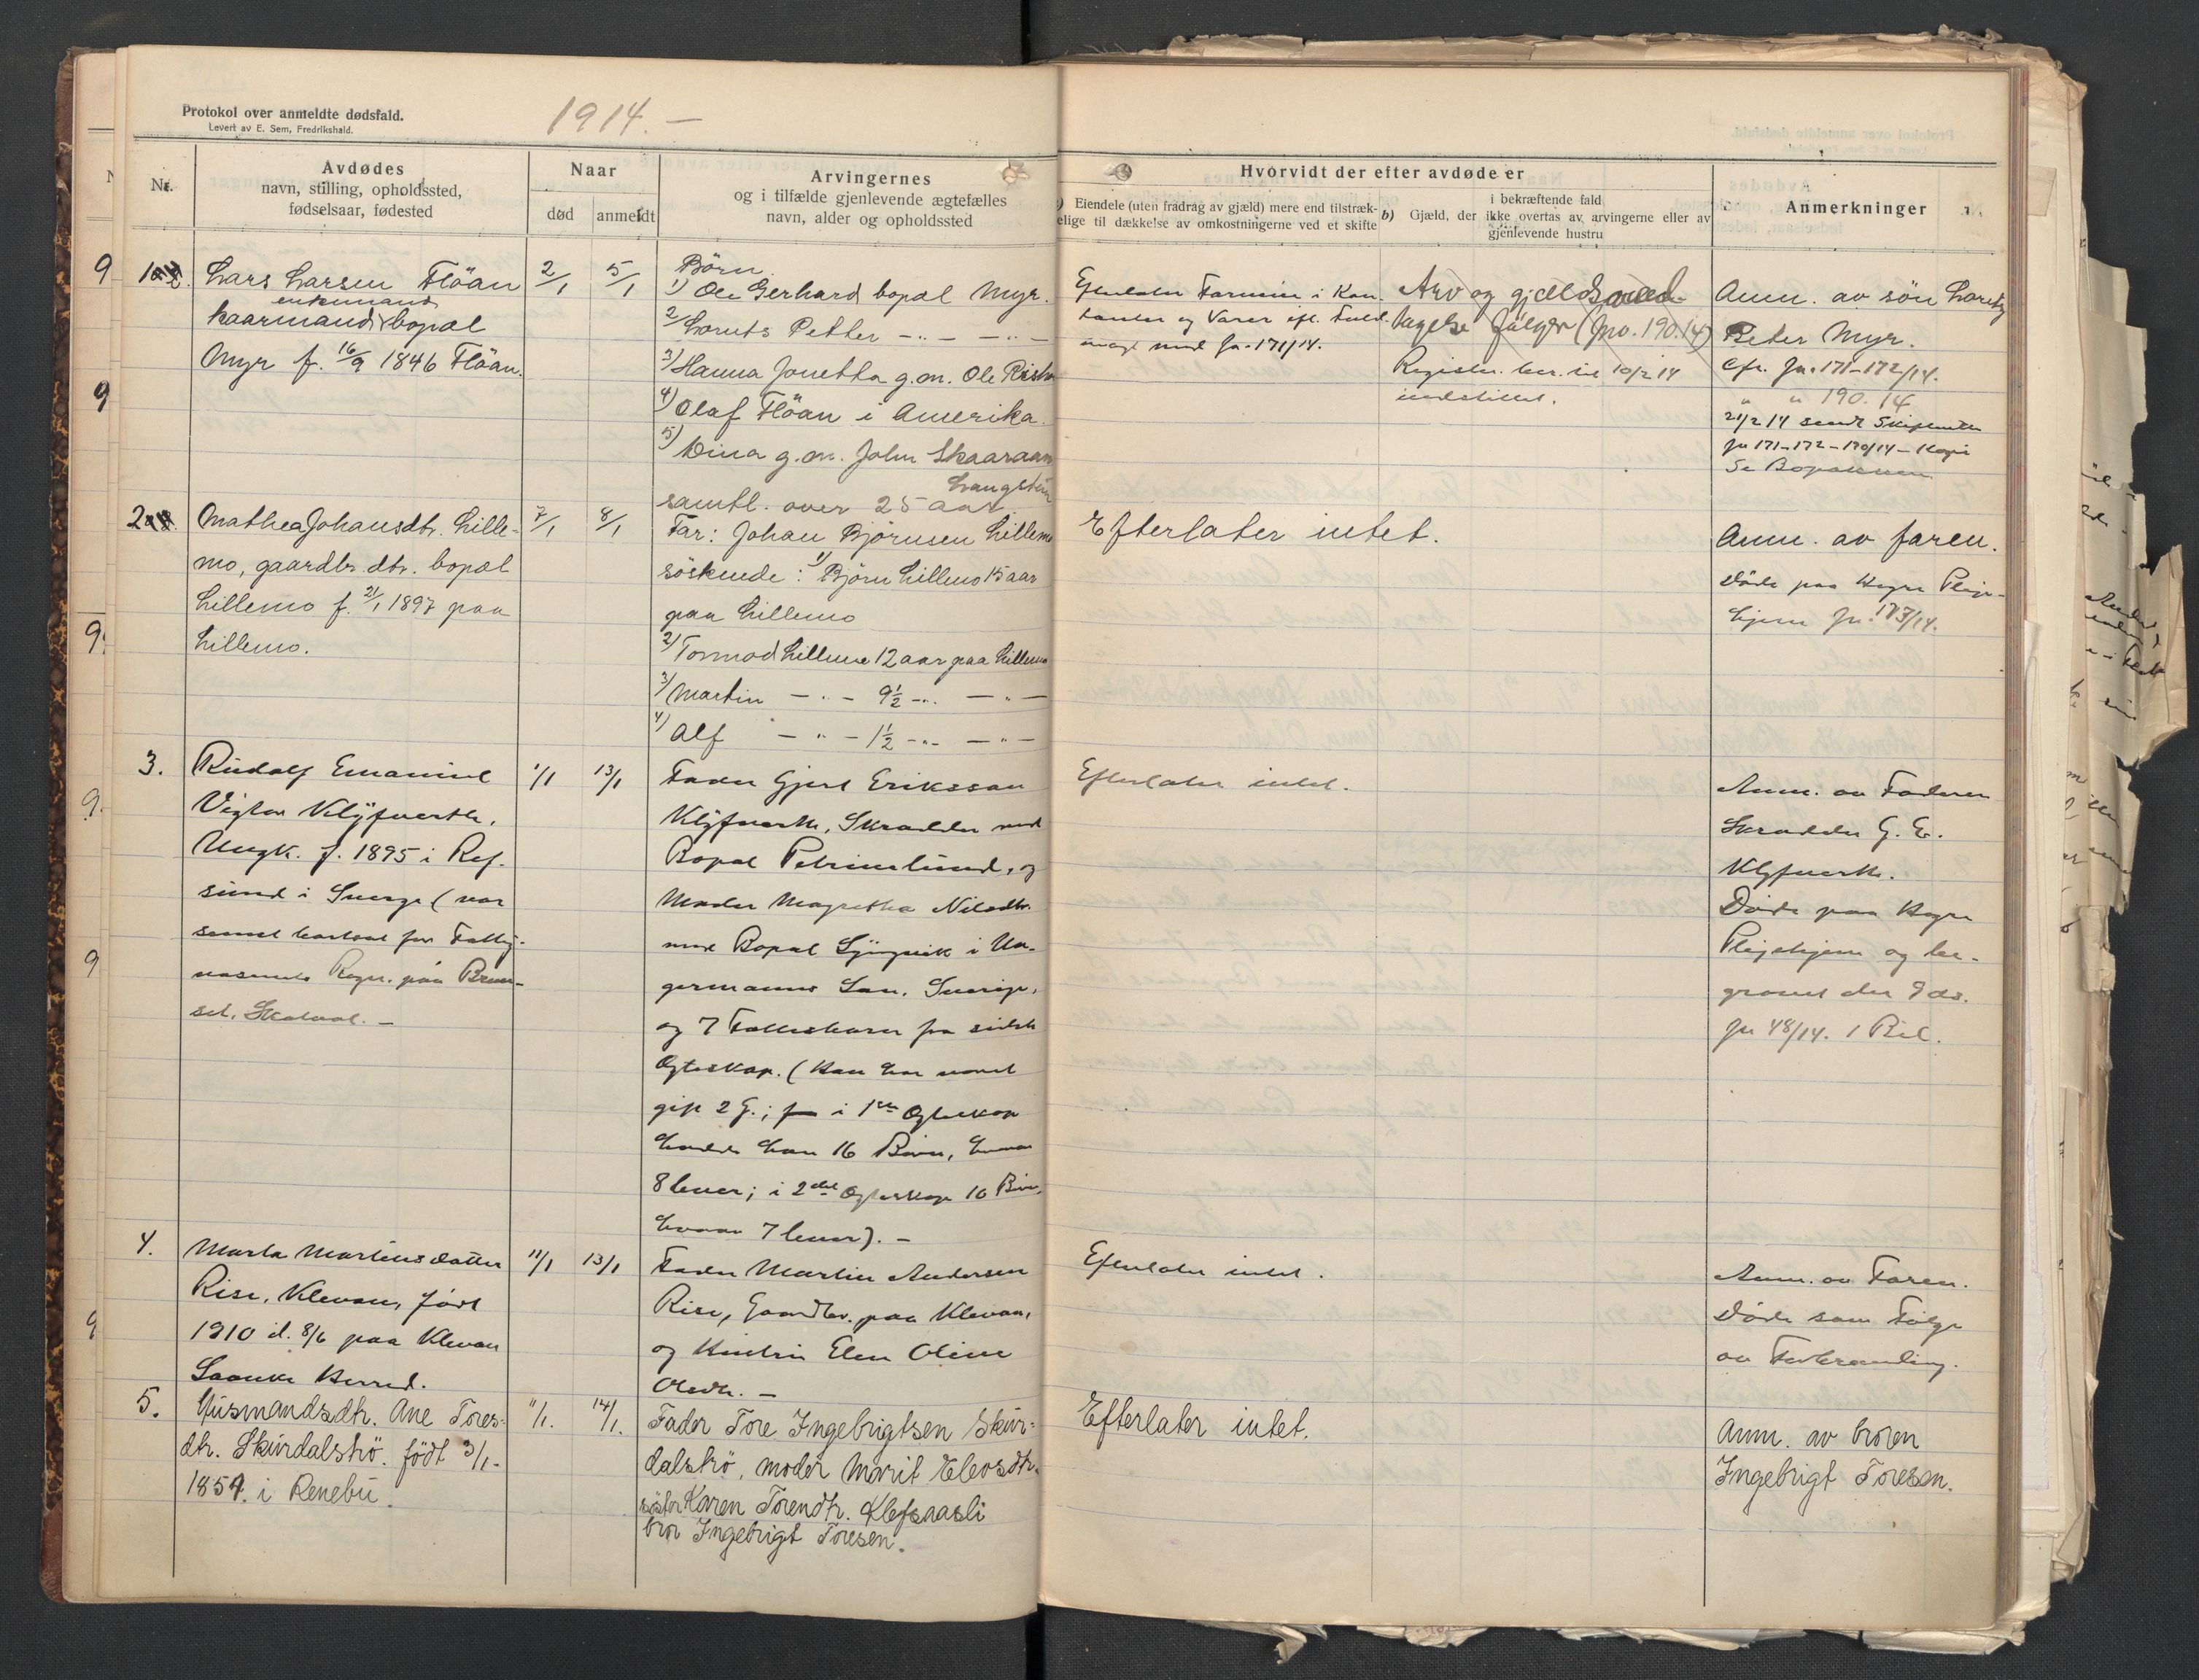 Protokol over anmeldte dødsfald.
Levert av E. Sem, Fredrikshald.
1914. —
Nr.
Avdødes
navn, stilling, opholdssted,
fødselsaar, fødested
Naar
død
anmeldt
Arvingernes
og i tilfælde gjenlevende ægtefælles
navn, alder og opholdssted
Hvorvidt der efter avdøde er
Eiendele (uten fradrag av gjæld) mere end tilstræk-
elige til dækkelse av omkostningerne ved et skifte
b) Gjæld, der
i bekræftende fald
ikke overtas av arvingerne eller av
gjenlevende hustru
Anmerkninger
1
Lars Larsen Flöan
enkemand
kaarmand bopæl
Myr f. 16/9 1846 Flöan.
2/1
5/1
Börn
1) Ole Gerhard bopæl Myr.
2/ Lorents Petter — " — — " —
3) Hanna Jonetta g.m. Ole
4) Olaf Flöan i Amerika.
5) g.m. John Skaaraan
Langstein
samtl. over 25 aar
Efterlater Formue i Kon-
tanter og Varer efl. Fuld-
magt med Jn. 171/14.
Arv og gjældsved-
tagelse følger (Jno. 190.14)
10/2 14
Anm. av sön Lorents
Peter Myr.
Cfr. Jn. 171-172/14.
" " 190. 14
21/2 14 sendt
Jn 171-172-190/14 - Kopi
2
Mathea Johansdtr. Lille-
mo, gaardbr. dtr. bopæl
Lillemo f. 21/1 1897 paa
Lillemo.
7/1
8/1
Far: Johan Björnsen Lillemo
söskende: 1) Björn Lillemo 15 aar
paa Lillemo
2) Tormod Lillemo 12 aar paa Lillemo
3) Martin — " — 9½ — " — — " —
4) Alf — " — 1½ — " — — " —
Efterlater intet.
Anm. av faren.
Döde paa Hegre Pleje-
hjem Jn. 173/14.
3.
Rudolf Emanuel
Viktor Klÿfverth,
Ungk. f. 1895 i Ref-
sund i Sverge (var
1/1
13/1
Fader Gjert Eriksson
Klyfverth, Skrædder med
Bopæl Petrinelund, og
Moder Magretha Nilsdtr.
med Bopæl i Un-
germanns Län, Sverige,
og 7 Fællesbarn fra sidste
Ægteskap. (Han har været
gift 2 G.; i 1ste Ægteskap
hadde han 16 Børn, hvorav
8 lever; i 2det Ægteskap 10 Børn,
hvorav 7 lever). —
Efterlater intet.
Anm. av Faderen
Skrædder G. E.
Klyfverth.
Døde paa Hegre
Plejehjem og be-
gravet den 9 ds.
Jn 48/14. 1 Bil.
4.
Marta Martinsdatter
Rise, Klevan, født
1910 d. 8/6 paa Klevan
Laanke Herred.
11/1
13/1
Fader Martin Andersen
Rise, Gaardbr. paa Klevan,
og Hustru Elen Oline
Olsdtr. —
Efterlater intet.
Anm. av Faren.
Døde som Følge
av Forbrænding.
5.
Husmandsdtr. Ane Tores-
dtr. Skurdalströ. födt 3/1-
1854. i Renebu.
11/1.
14/1.
Fader Tore Ingebrigtsen Skur-
dalströ, moder Marit
söster Karen Toresdtr. Klefsaasli
bror Ingebrigt Toresen.
Efterlater intet.
Anm. av broren
Ingebrigt Toresen.